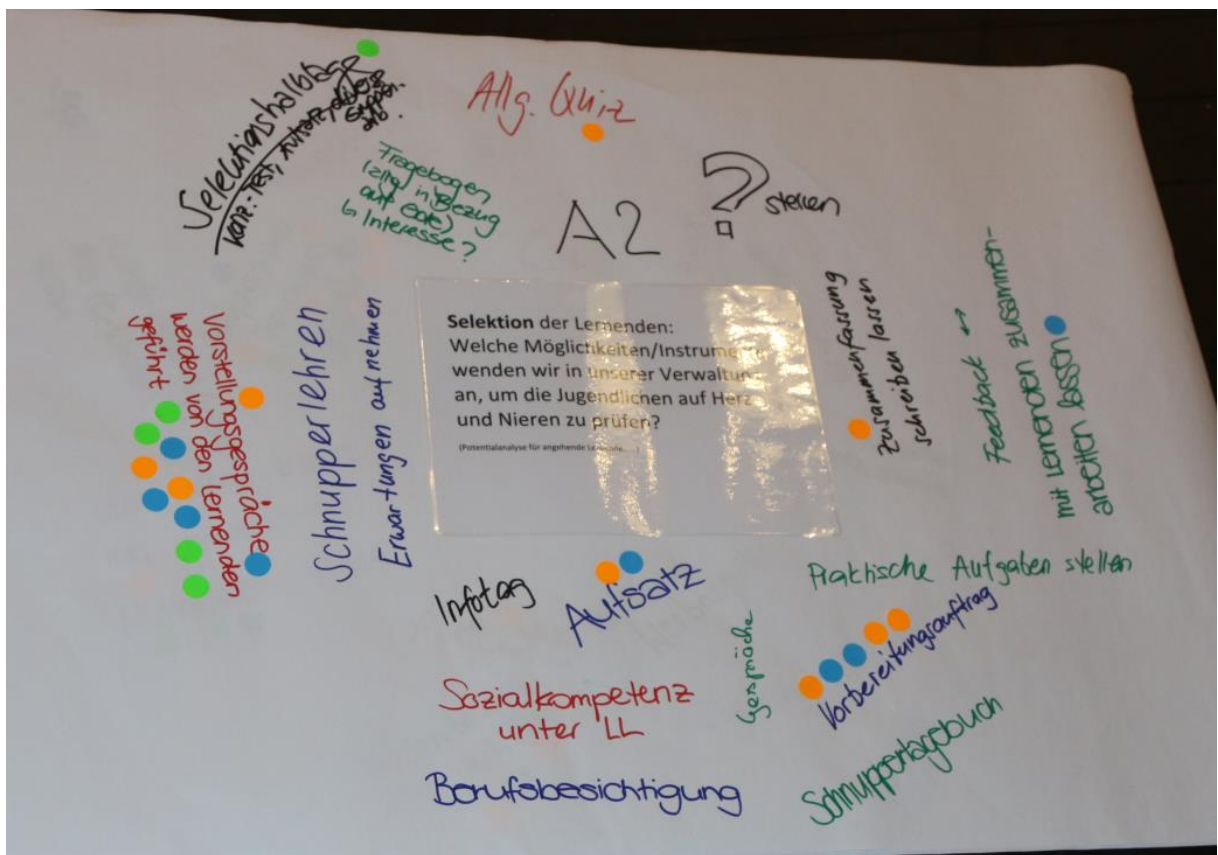 Selektionshalbtage
Kurz.-Test, Aufsatz,
Allg. Quiz
Fragebogen
in Bezug
auf
Interesse?
A2
? stellen
Selektion der Lernenden:
Welche Möglichkeiten/Instrumente
wenden wir in unserer Verwaltung
an, um die Jugendlichen auf Herz
und Nieren zu prüfen?
(Potentialanalyse für angehende
Vorstellungsgespräche
werden von den Lernenden
geführt
Schnupperlehren
Erwartungen aufnehmen
Zusammenfassung
schreiben lassen
Feedback ↔
mit Lernenden zusammen-
arbeiten lassen
Infotag
Aufsatz
Praktische Aufgaben stellen
Gespräche
Vorbereitungsauftrag
Sozialkompetenz
unter LL
Berufsbesichtigung
Schnuppertagebuch